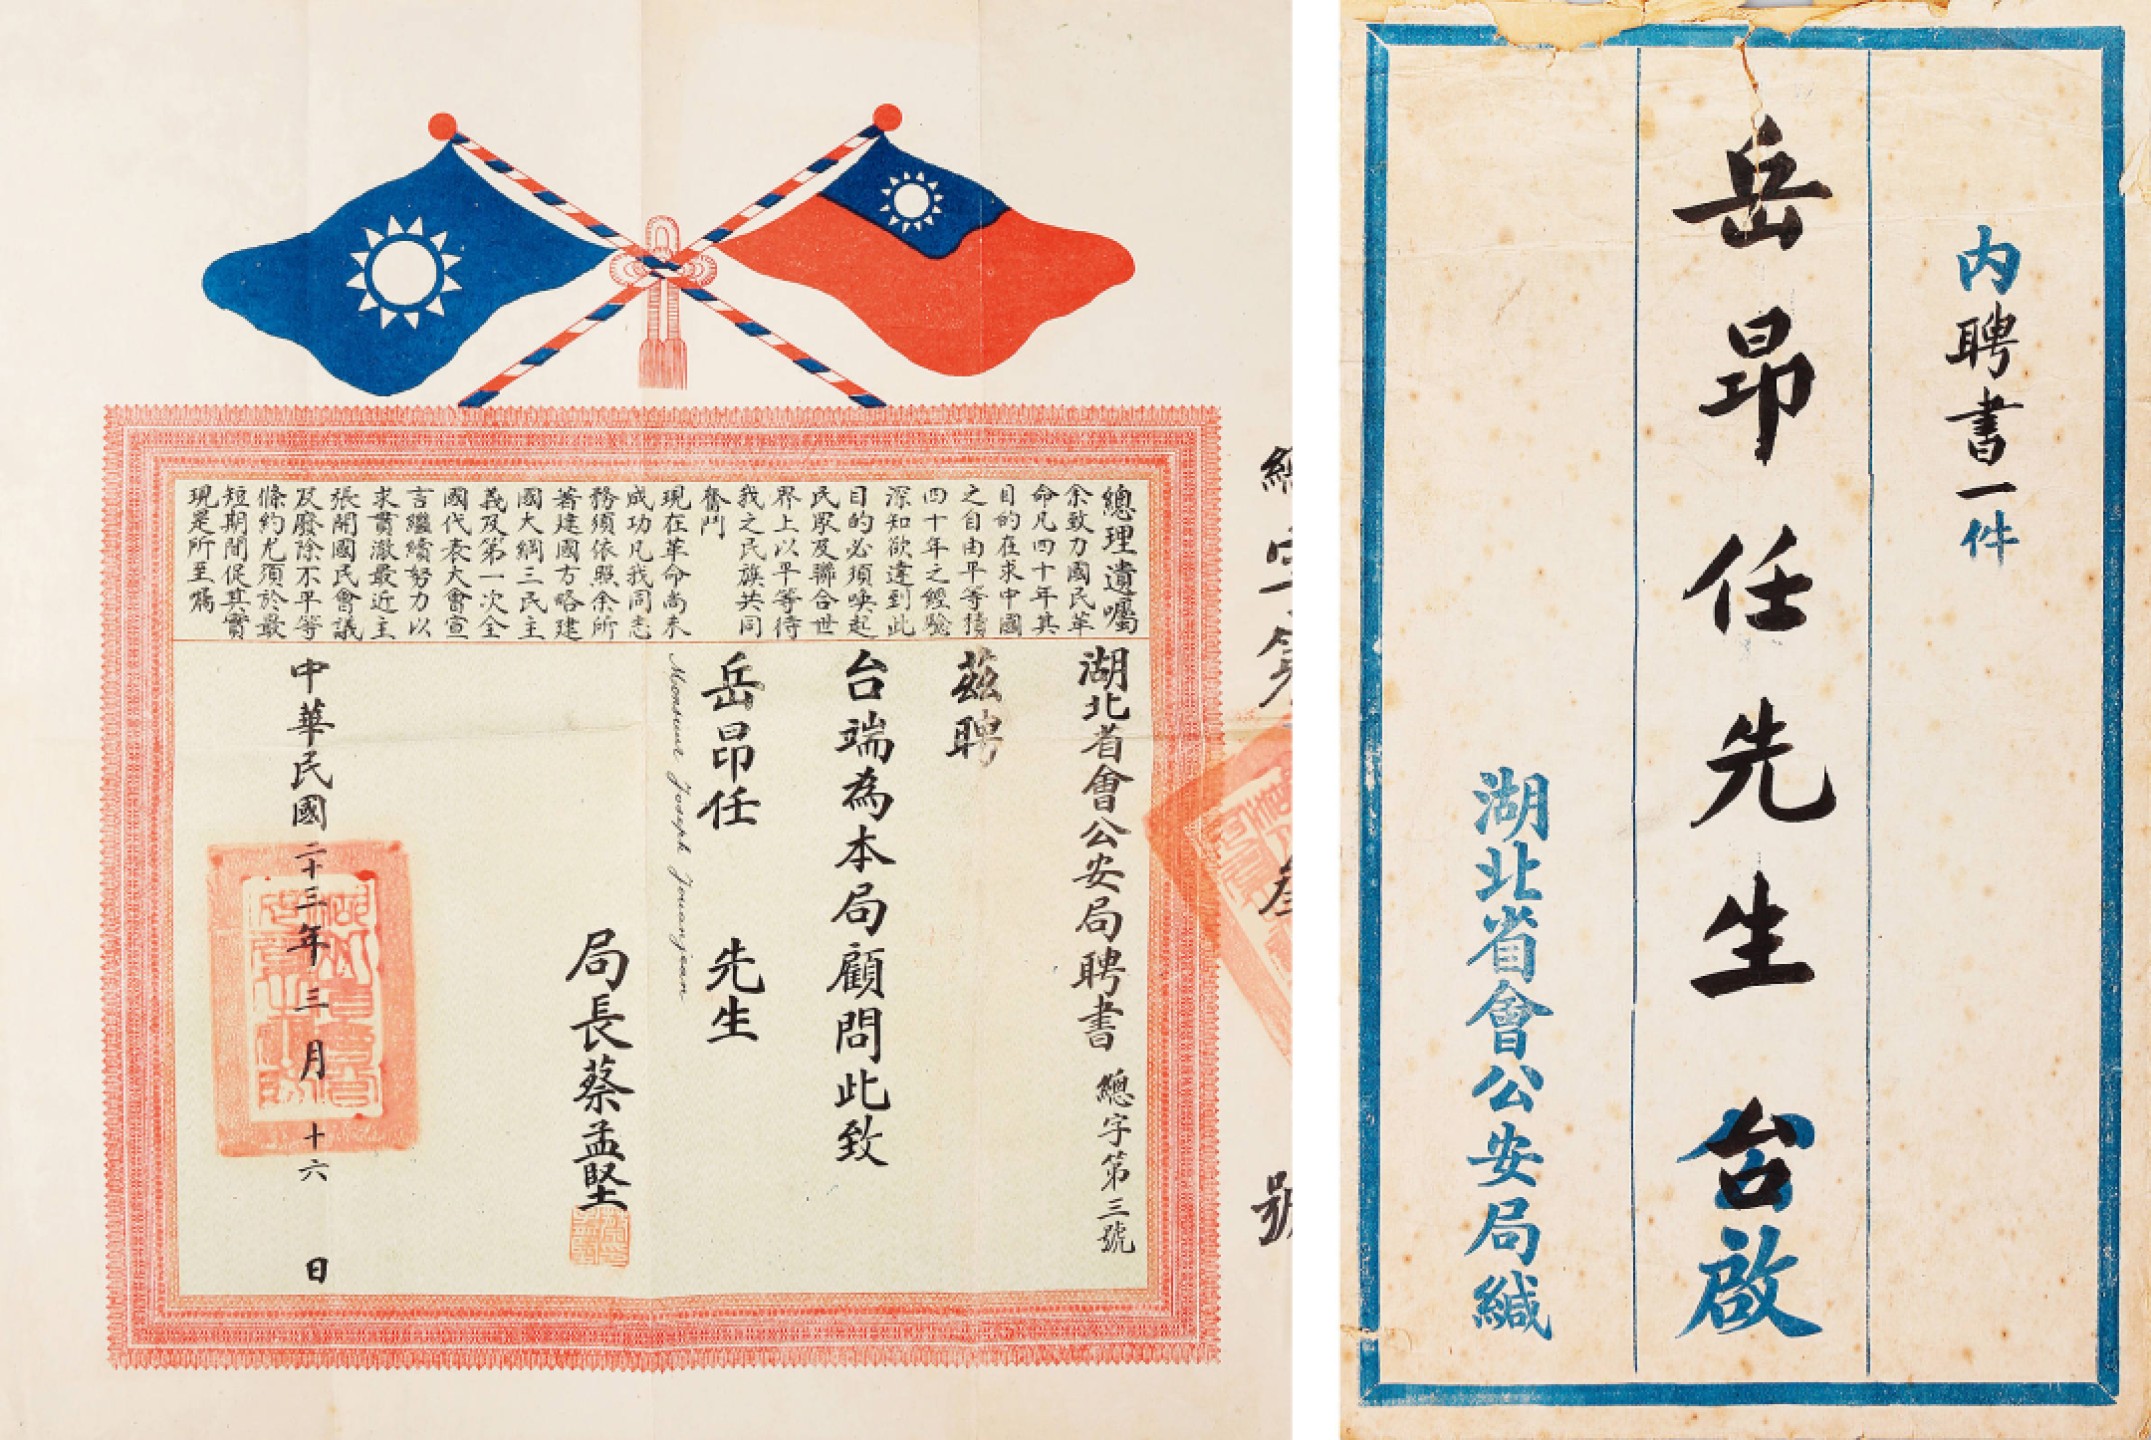 總理遺囑
余致力國民革
命凡四十年其
目的在求中國
之自由平等積
四十年之經驗
深知欲達到此
目的必須喚起
民眾及聯合世
界上以平等待
我之民族共同
奮鬥
現在革命尚未
成功凡我同志
務須依照余所
著建國方略建
國大綱三民主
義及第一次全
國代表大會宣
言繼續努力以
求貫澈最近主
張開國民會議
及廢除不平等
條約尤須於最
短期間促其實
現是所至囑
湖北省會公安局聘書 總字第三號
茲聘
台端為本局顧問此致
岳昂任 先生
Monsieur Joseph Jouanjean
局長蔡孟堅
中華民國二十三年三月十六日
號
內聘書一件
岳昂任先生 台啟
湖北省會公安局緘